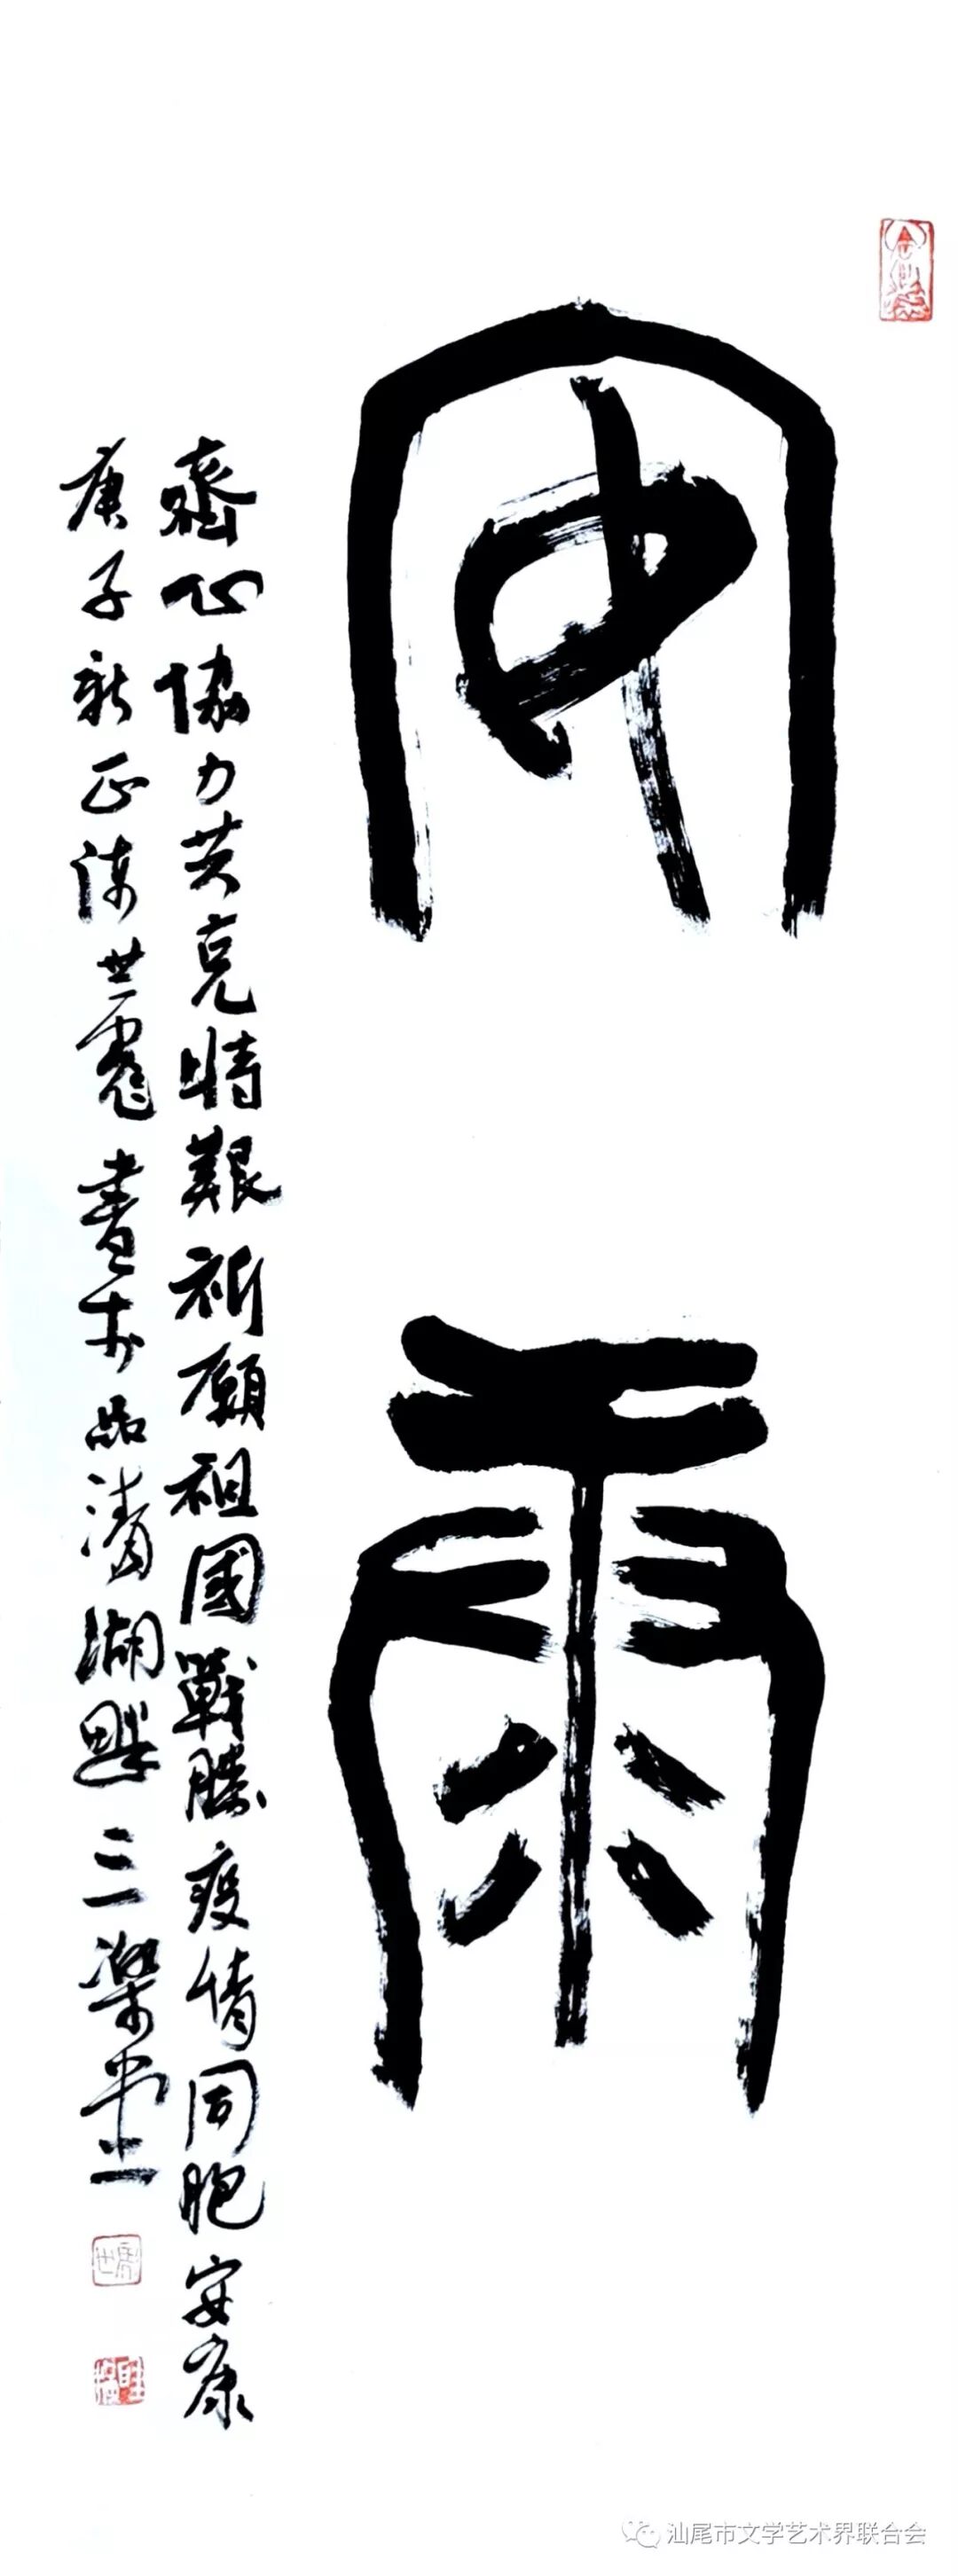 安康
齊心協力共克時艱祈願祖國戰勝疫情同胞安康
庚子新正陳世彪書于品清湖畔三樂堂
汕尾市文学艺术界联合会